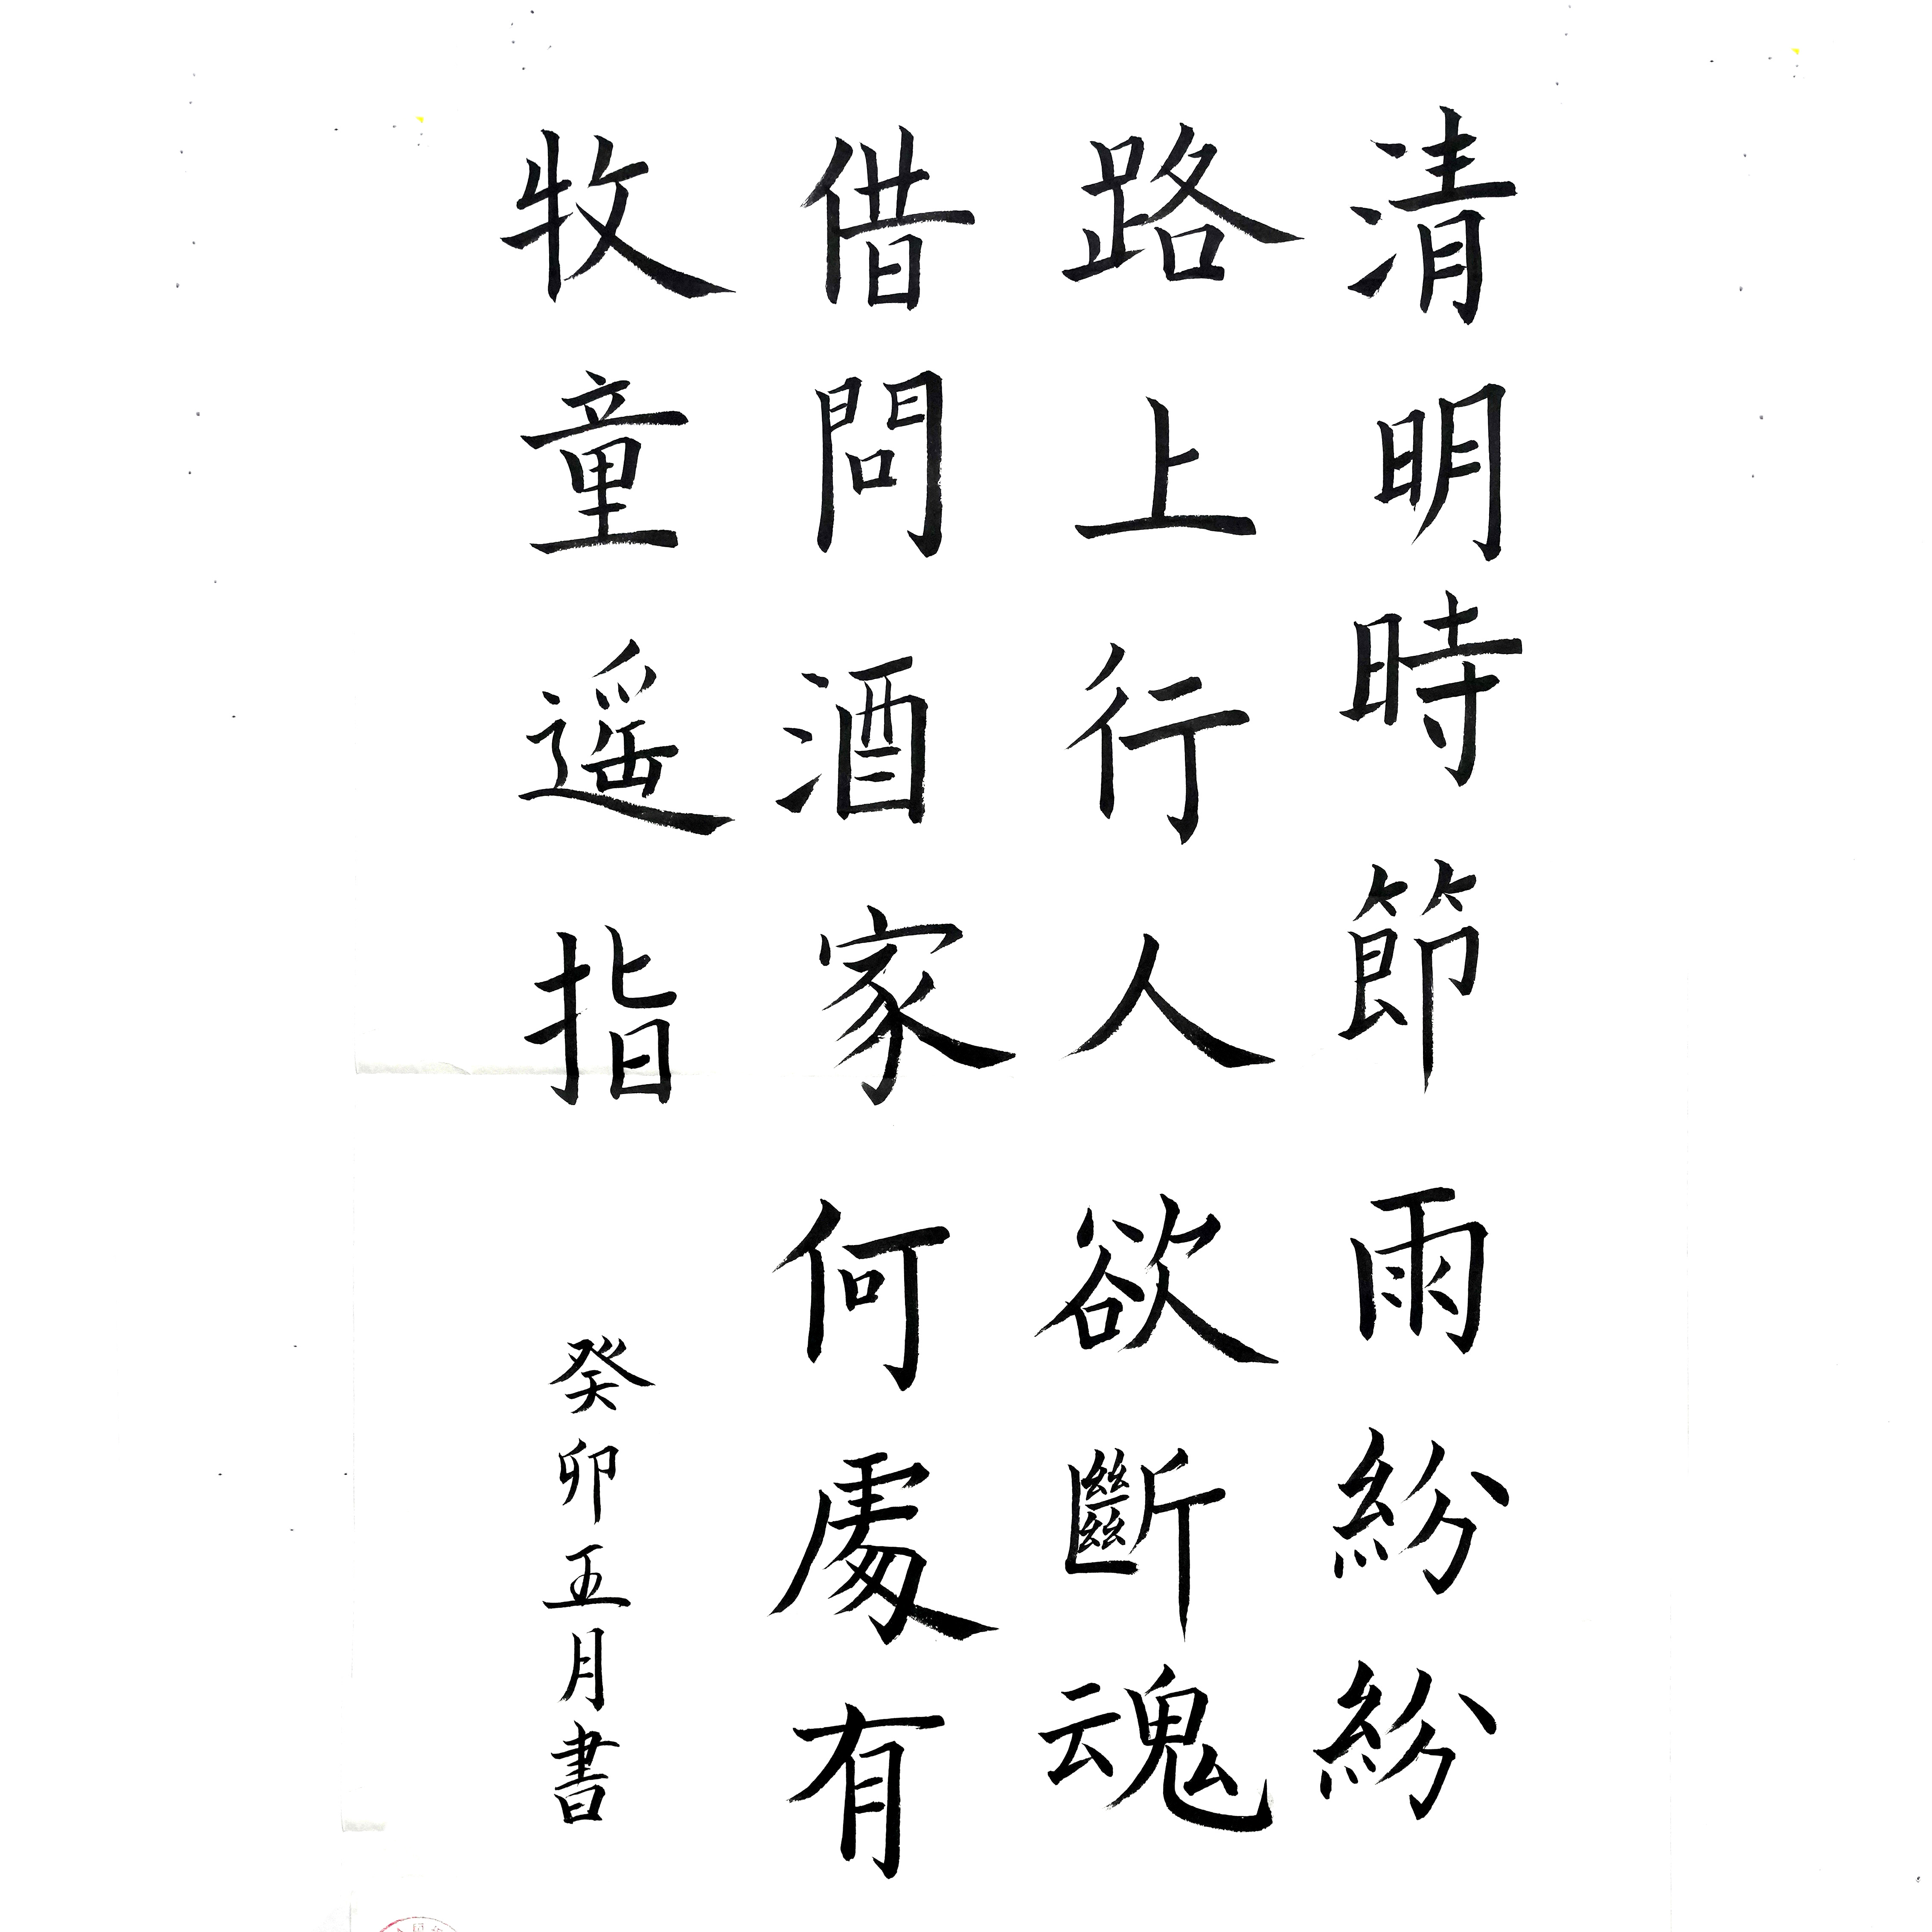 清明時節雨紛紛
路上行人欲斷魂
借問酒家何處有
牧童遥指
癸卯五月書